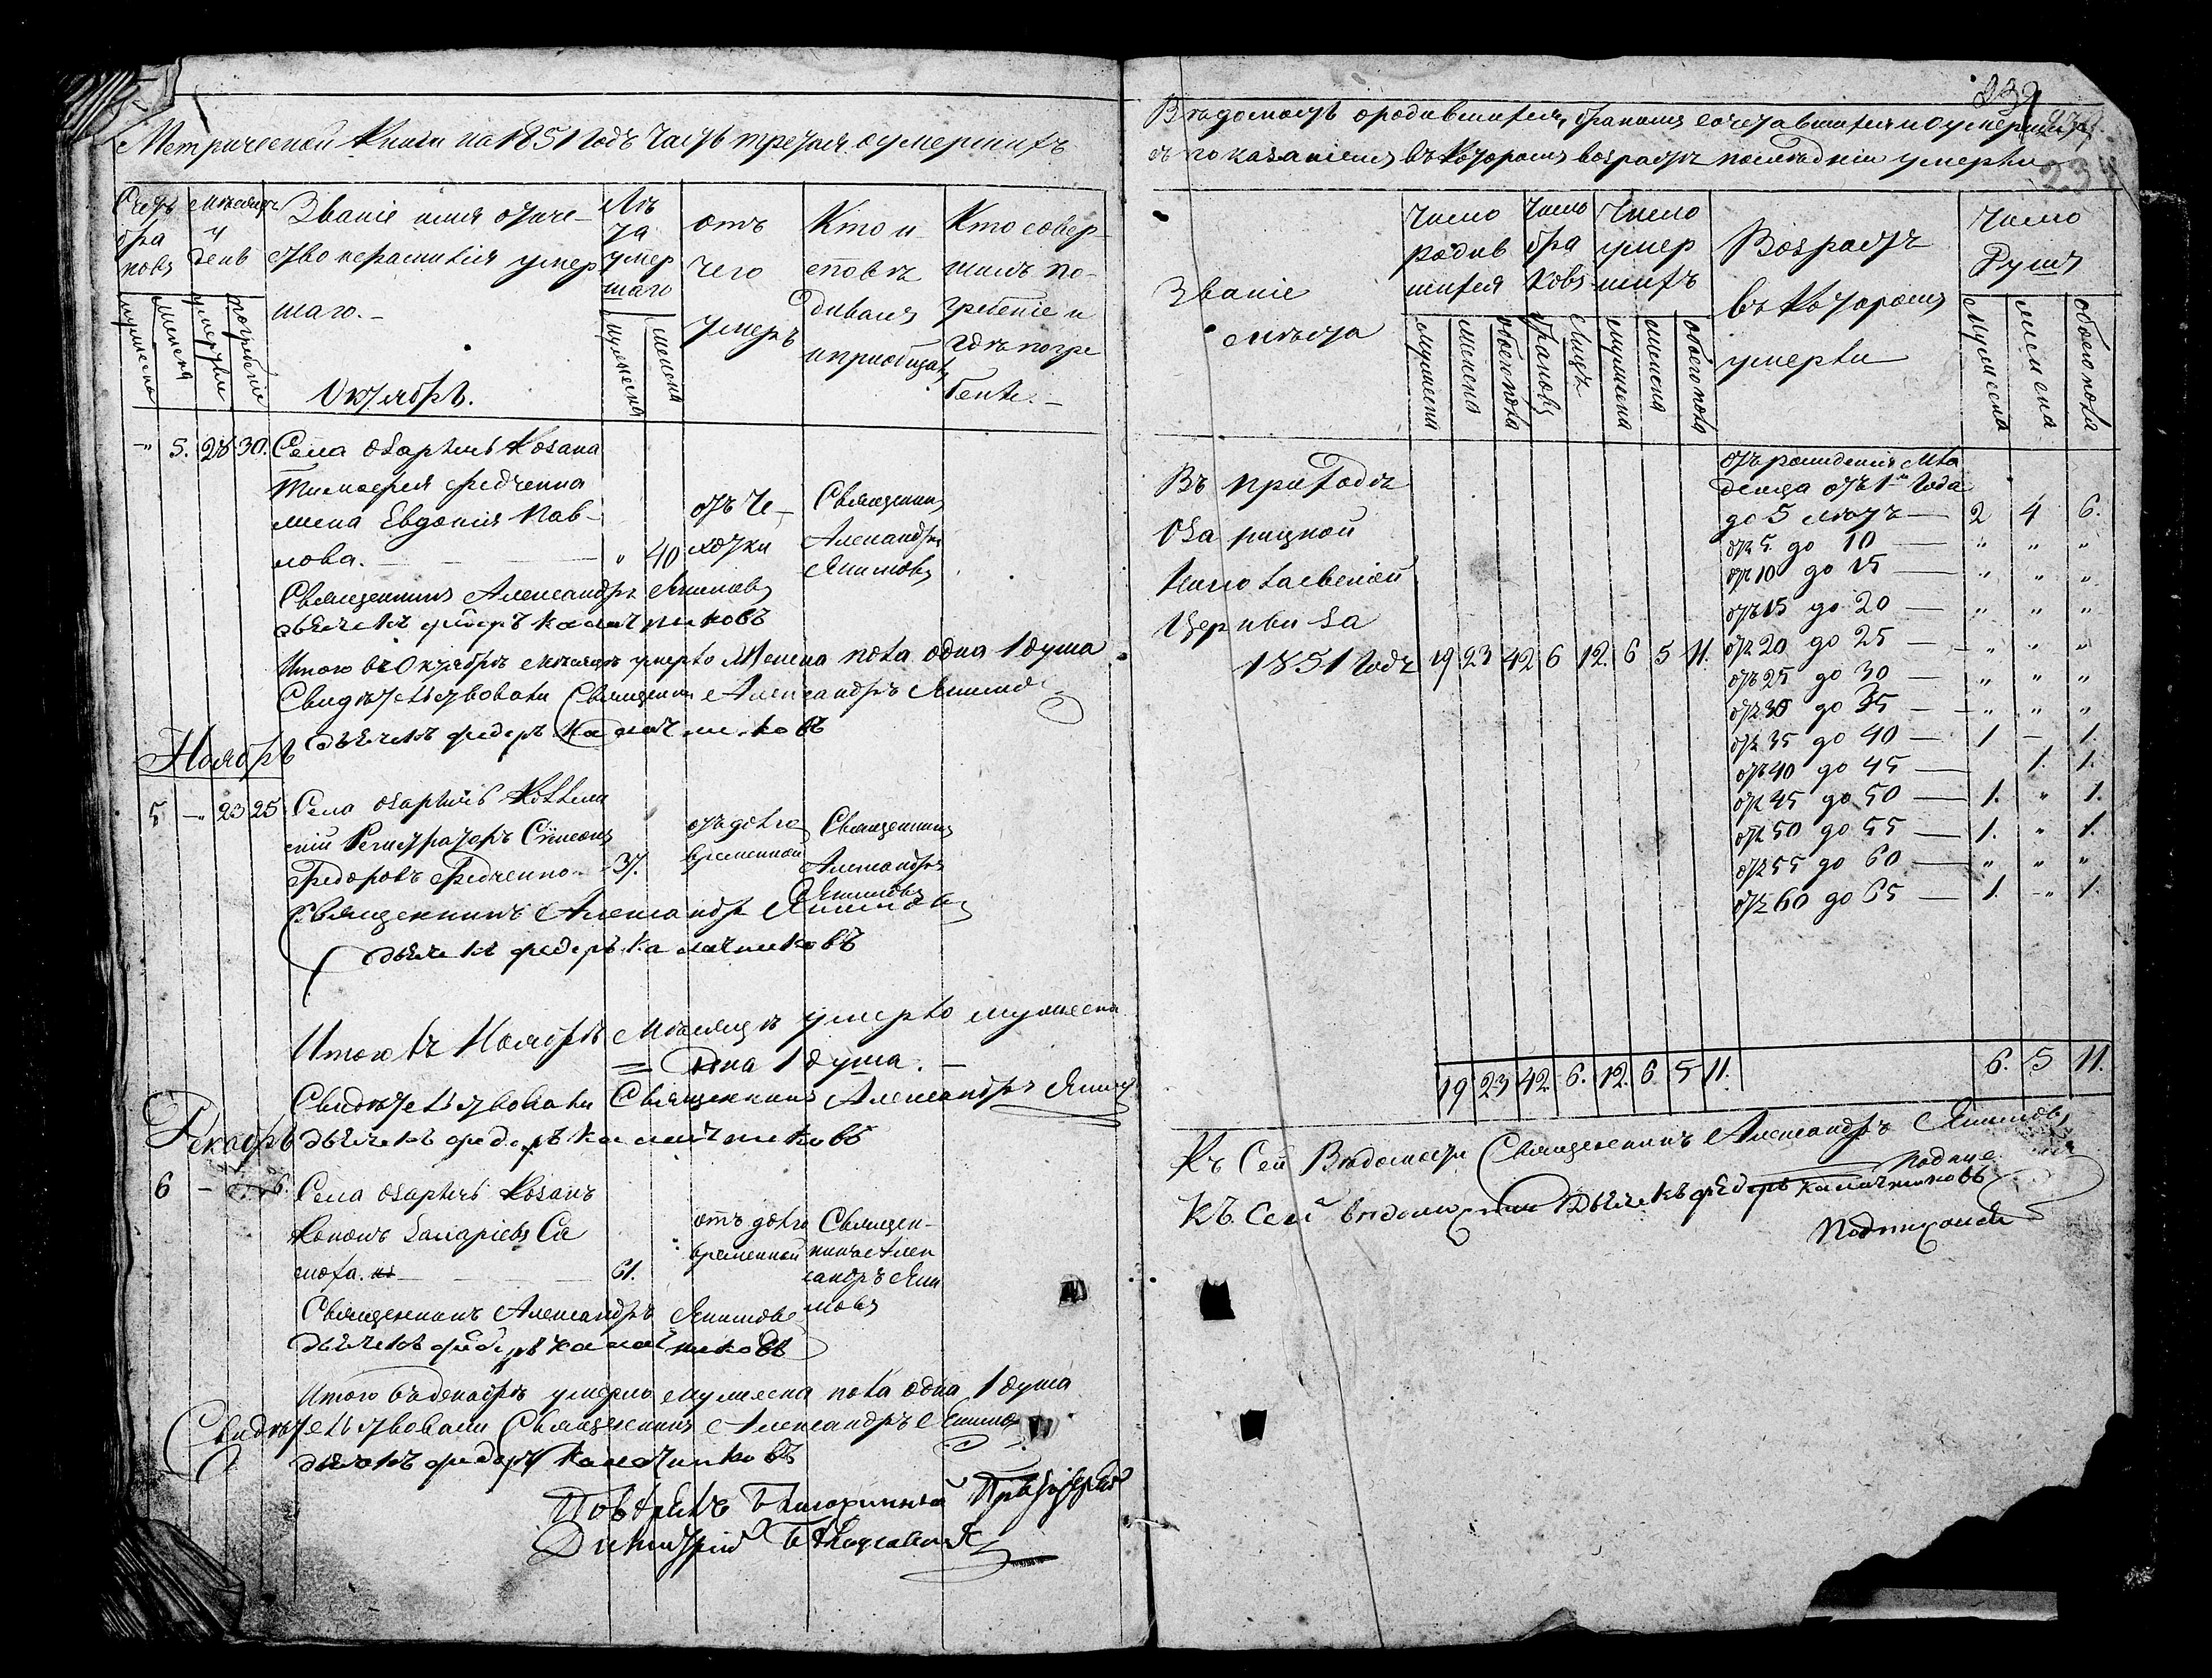 Метрической Книги на 1851 Годъ Часть третья о умершихъ
Счетъ браковъ
Месяцъ и день
Званіе имя отчество и фамилія умершаго.
Лѣта умершаго
отъ чего умеръ
Кто исповѣдывалъ и приобщалъ
Кто совершилъ погребеніе и гдѣ погребенъ.
мужеска
женска
мужеска
женска
Октябрь.
" 5. 28 30. Села Озарычъ Козака
Тимофея Федченка
жена Евдокія Пав-
лова. " 40
отъ че-
хотки
Священникъ
Александръ
Якимовъ
Священникъ Александръ Якимовъ
дьячекъ федоръ калачниковъ
Итого въ Октябрѣ месяцѣ умерло Женска пола одна 1 душа
Свидѣтельствовали Священникъ Александръ Якимовъ
дьячекъ федоръ калачниковъ
Ноябрь
5 " 23 25 Села Озарычъ Коллеж
скій Регистраторъ Сѵмеонъ
Федоровъ Федченко 37.
отъ долго
временной
Священникъ
Александръ
Якимовъ
Священникъ Александръ Якимовъ
дьячекъ федоръ калачниковъ
Итого въ Ноябрѣ Месяцѣ умерло мужеска
одна 1 душа.
Свидѣтельствовали Священникъ Александръ Якимовъ
Декабрь дьячекъ федоръ калачниковъ
6 - 6. Села Озарычъ Козакъ
Кононъ Са
моха. 61.
отъ долго
временной
Священ-
никъ Алек
сандръ Яки
мовъ
Священникъ Александръ Якимовъ
дьячекъ федоръ калачниковъ
Итого въ декабрѣ умерло мужеска пола одна 1 душа
Свидѣтельствовали Священникъ Александръ Якимовъ
дьячекъ федоръ калачниковъ
Повѣрялъ Благочинный
Димитрій
239
Вѣдомость о родившихся, бракомъ сочетавшихся и о умершихъ
съ показаніемъ въ которомъ возрастѣ послѣдніи умерли
Званіе
мѣста
Число
родив
шихся
Число
бра
ковъ
Число
умер
шихъ
Возрастъ
въ которомъ
умерли
Число
Душъ
мужеска
женска
обоего пола
браковъ
лицъ
мужеска
женска
обоего пола
мужеска
женска
обоего пола
Въ приходѣ
Озарицкой
Николаевской
Церкви за
1851 Годъ 19 23 42 6 12. 6 5 11.
отъ рожденія Мла
денца отъ 1 Года
до 5 лѣтъ 2 4 6.
отъ 5 до 10 " " "
отъ 10 до 15 " " "
отъ 15 до 20 " " "
отъ 20 до 25 " " "
отъ 25 до 30 " " "
отъ 30 до 35 " " "
отъ 35 до 40 1 - 1
отъ 40 до 45 1. 1.
отъ 45 до 50 1. " 1.
отъ 50 до 55 1. " 1.
отъ 55 до 60 " " "
отъ 60 до 65 1. " 1.
19 23 42. 6. 12. 6 5 11. 6. 5 11.
Къ Сей Вѣдомости Священникъ Александръ Якимовъ
Къ Сей вѣдомости Дьячекъ федоръ калачниковъ
Подписался